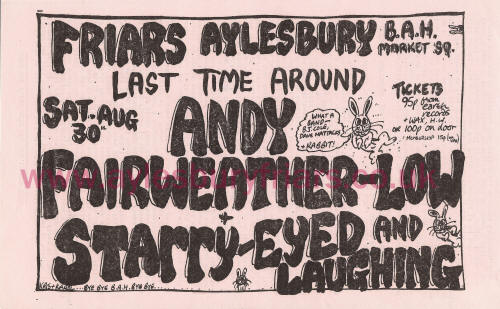 FRIARS AYLESBURY B.A.H.
MARKET SQ.
LAST TIME AROUND
SAT. AUG
30th
ANDY
FAIRWEATHER LOW
WHAT A
BAND -
B.J. COLE,
DAVE MATTACKS
+ RABBIT!
TICKETS
95p from
earth
records
+ WAX, H.H.
OR 100p on door
+
STARRY-EYED AND
LAUGHING
BYE BYE B.A.H. BYE BYE...
www.aylesburyfriars.co.uk